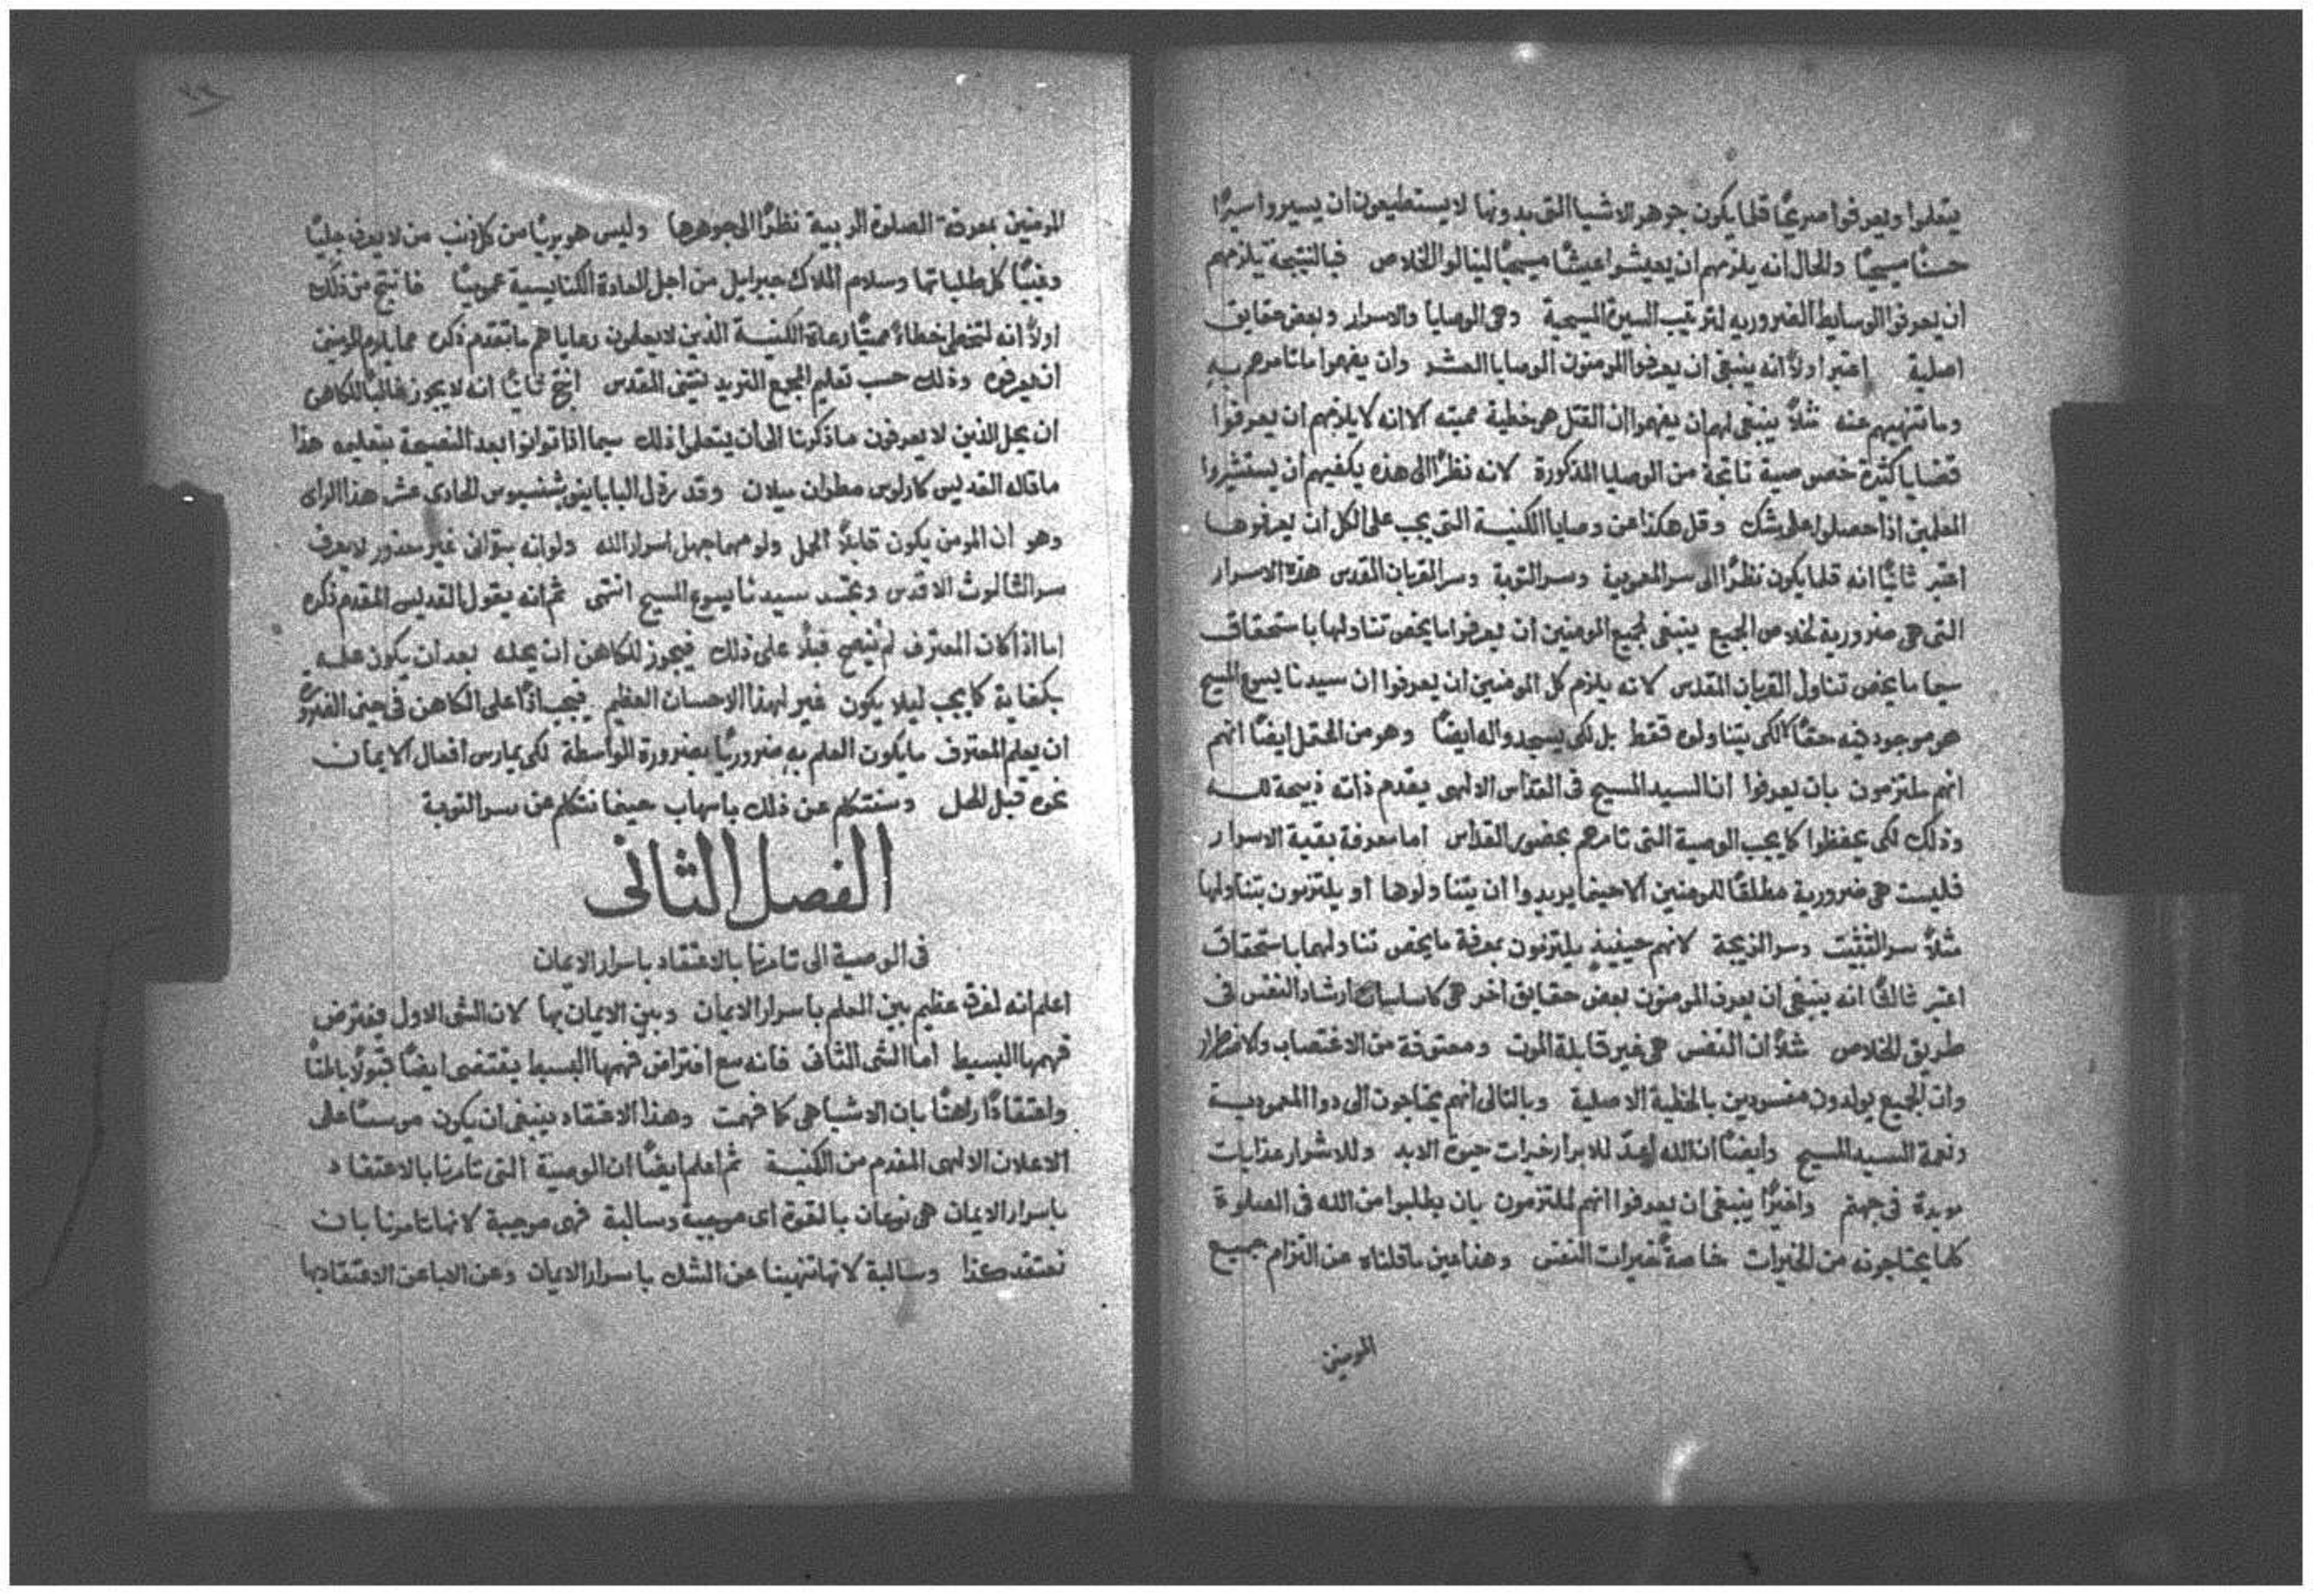 يتعلموا ويعرفوا صريحًا قلما يكون جوهر الاشيا التى بدونها لا يستطيعون أن يسيروا سيرًا
حسنًا مسيحيًا والحال انه يلزمهم ان يعيشوا عيشًا مسيحيًا لينالوا الخلاص فبالنتيجة يلزمهم
ان يعرفوا الوسايط الضروريه لترتيب السيرة المسيحية وهى الوصايا والاسرار وبعض حقايق
اصلية اعتبر اولاً انه ينبغى ان يعرفوا المومنون الوصايا العشر وأن يفهموا ما تامرهم به
وما تنهيهم عنه مثلاً ينبغى لهم ان يفهموا ان القتل هو خطية مميته الا انه لا يلزمهم ان يعرفوا
قضايا كثيرة خصوصية ناتجة من الوصايا المذكورة لانه نظرًا الى هذه يكفيهم ان يستشيروا
المعلمين اذا حصلوا على شك وقل هكذا عن وصايا الكنيسة التى يجب على الكل ان يعرفوها
اعتبر ثانيًا انه قلما يكون نظرًا الى سر المعمودية وسر التوبة وسر القربان المقدس هذه الاسرار
التى هى ضرورية لخلاص الجميع ينبغى لجميع المومنين ان يعرفوا ما يخص تناولها باستحقاق
سيما ما يخص تناول القربان المقدس لانه يلزم كل المومنين ان يعرفوا ان سيدنا يسوع المسيح
هو موجود فيه حقًا لا لكى يتناولوه فقط بل لكى يسجدوا له ايضًا وهو من المحتمل ايضًا انهم
انهم ملتزمون بان يعرفوا ان السيد المسيح فى القداس الالهى يقدم ذاته ذبيحة لله
وذلك لكى يحفظوا كما يجب الوصية التى تامرهم بحضور القداس اما معرفة بقية الاسرار
فليست هى ضرورية مطلقًا للمومنين الا حينما يريدوا ان يتناولوها او يلتزمون بتناولها
مثلاً سر التثبيت وسر الزيجة لانهم حينيذٍ يلتزمون بمعرفة ما يخص تناولهما باستحقاق
اعتبر ثالثًا انه ينبغى ان يعرف المومنون بعض حقايق اخر هى كاساسات لارشاد النفس فى
طريق الخلاص مثلاً ان النفس هى غير قابلة الموت ومعتوقة من الاغتصاب والاضطرار
وان الجميع يولدون مفسودين بالخطية الاصلية وبالتالى انهم يحتاجون الى دوا المعمودية
ونعمة السيد المسيح وايضًا ان الله اعدّ للابرار خيرات حيوة الابد وللاشرار عذابات
موبدة فى جهنم واخيرًا ينبغى ان يعرفوا انهم لملتزمون بان يطلبوا من الله فى الصلوة
كلما يحتاجونه من الخيرات خاصةً خيرات النفس وهذا عين ما قلناه عن التزام جميع
المومنين
المومنين بمعرفة الصلوة الربية نظرًا الى جوهرها وليس هو بريًا من كل ذنب من لا يعرف جليًا
وغيبًا كل طلباتها وسلام الملاك جبراييل من اجل العادة الكنايسية عموميًا فانتج من ذلك
اولاً انه لتخطى خطاءً مميتًا رعاة الكنيسة الذين لا يعلمون رعاياهم ما تقدم ذكره مما يلزم المومنين
ان يعرفوه وذلك حسب تعليم المجمع التريدنتينى المقدس انتج ثانيًا انه لا يجوز غالبًا للكاهن
ان يحل الذين لا يعرفون ما ذكرنا الى أن يتعلموا ذلك سيما اذا توانوا بعد النصيحة بتعليمه هذا
ما قاله القديس كارلوس مطران ميلان وقد رذل البابا اينوشنسيوس الحادى عشر هذا الراى
وهو ان المومن يكون قابلاً الحل ولو مهما جهل اسرار الله ولو انه بتوانى غير معذور لا يعرف
سر الثالوث الاقدس وتجسد سيدنا يسوع المسيح انتهى ثم انه يقول القديس المقدم ذكره
اما اذا كان المعترف لم ينصح قبلاً على ذلك فيجوز للكاهن ان يحله بعد ان يكون علمه
بكفاية كما يجب ليلا يكون غير لهذا الاحسان العظيم فيجب اذًا على الكاهن فى حين الضرورة
ان يعلم المعترف ما يكون العلم به ضروريًا بضرورة الواسطة لكى يمارس افعال الايمان
نحوه قبل الحل وسنتكلم عن ذلك باسهاب حينما نتكلم عن سر التوبة
الفصل الثانى
فى الوصية الى تامرنا بالاعتقاد باسرار الايمان
اعلم انه لفرق عظيم بين العلم باسرار الايمان وبين الايمان بها لان الشى الاول يفترض
فهمها البسيط اما الشى الثانى فانه مع افتراض فهمها البسيط يقتضى ايضًا قبولاً باطنًا
واعتقادًا راهنًا بان الاشيا هى كما فهمت وهذا الاعتقاد ينبغى ان يكون موسسًا على
الاعلان الالهى المقدم من الكنيسة ثم اعلم ايضًا ان الوصية التى تامرنا بالاعتقاد
باسرار الايمان هى نوعان بالقوة اى موجبة وسالبة فهى موجبة لانها تامرنا بان
نعتقد هكذا وسالبة لانها تنهينا عن الشك باسرار الايمان وعن الابا عن الاعتقاد بها